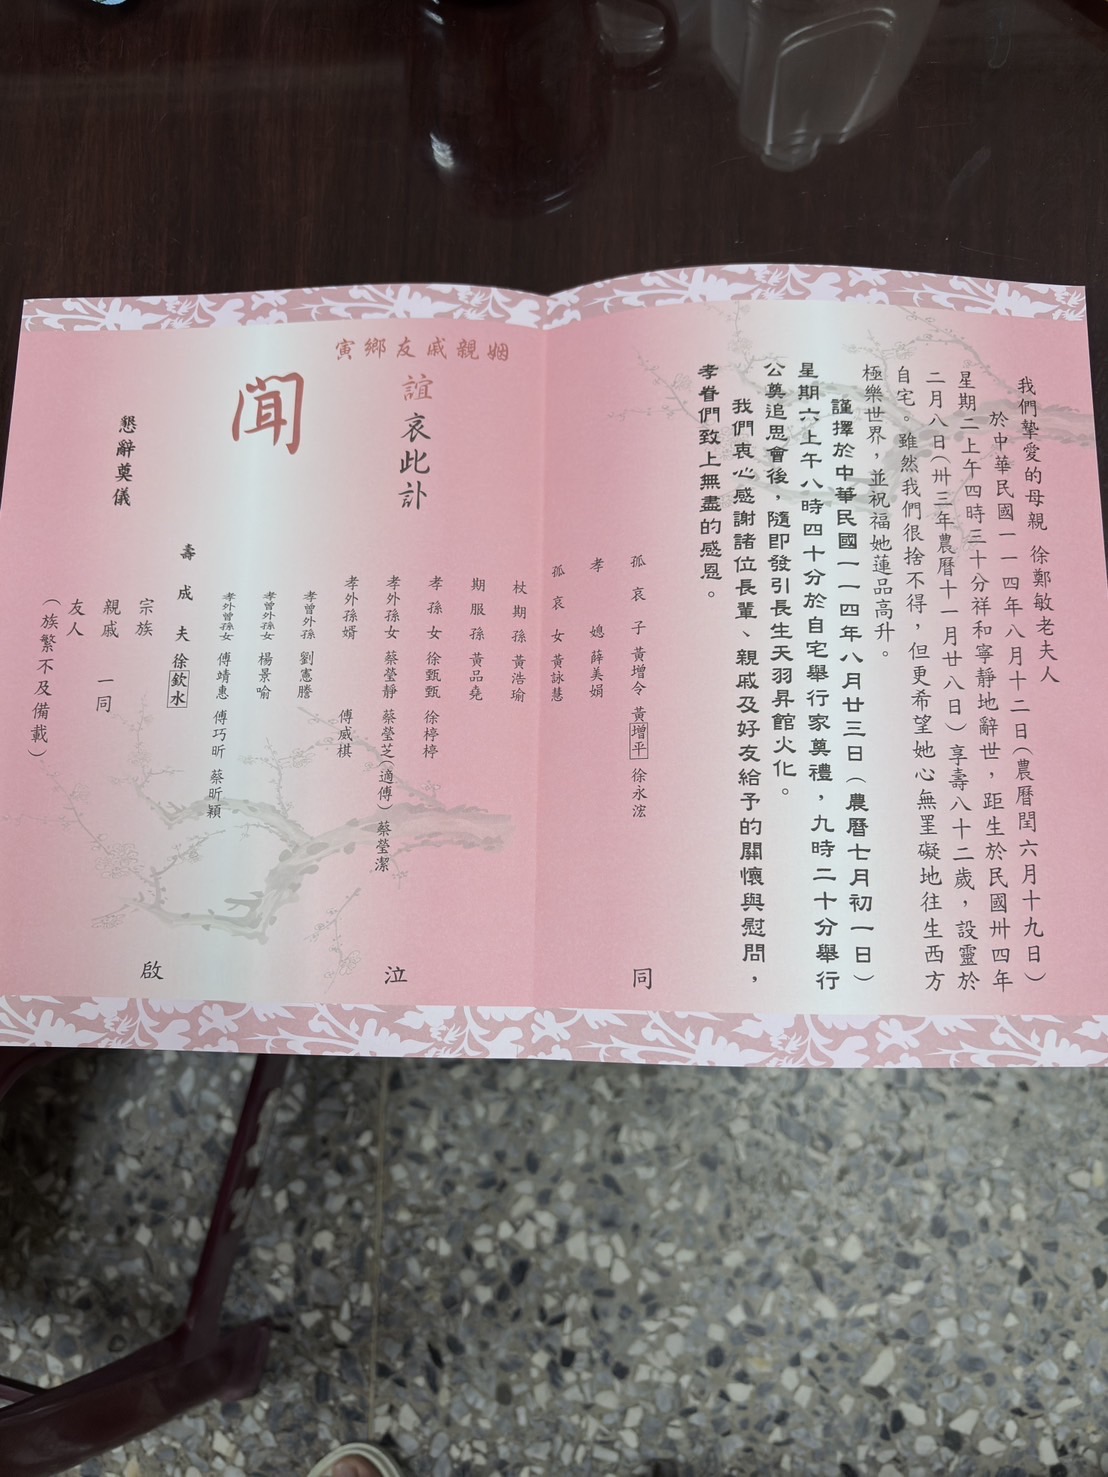 我們摯愛的母親 徐鄭敏老夫人
於中華民國一一四年八月十二日(農曆閏六月十九日)
星期二上午四時三十分祥和寧靜地辭世，距生於民國卅四年
二月八日(卅三年農曆十一月廿八日)享壽八十二歲，設靈於
自宅。雖然我們很捨不得，但更希望她心無罣礙地往生西方
極樂世界，並祝福她蓮品高升。
謹擇於中華民國一一四年八月廿三日(農曆七月初一日)
星期六上午八時四十分於自宅舉行家奠禮，九時二十分舉行
公奠追思會後，隨即發引長生天羽昇館火化。
我們衷心感謝諸位長輩、親戚及好友給予的關懷與慰問，
孝眷們致上無盡的感恩。
孤哀子 黃增令 黃增平 徐永浤
孝媳 薛美娟
孤哀女 黃詠慧
杖期孫 黃浩瑜
期服孫 黃品堯
孝孫女 徐甄甄 徐梈梈
孝外孫女 蔡瑩靜 蔡瑩芝(適傅) 蔡瑩潔
孝外孫婿 傅威棋
孝曾外孫 劉憲騰
孝曾外孫女 楊景喻
孝外曾孫女 傅靖惠 傅巧昕 蔡昕穎
壽成夫 徐欽水
宗族
親戚 一同
友人
(族繁不及備載)
同
泣
啟
姻親戚友鄉寅
誼哀此訃
聞
懇辭奠儀